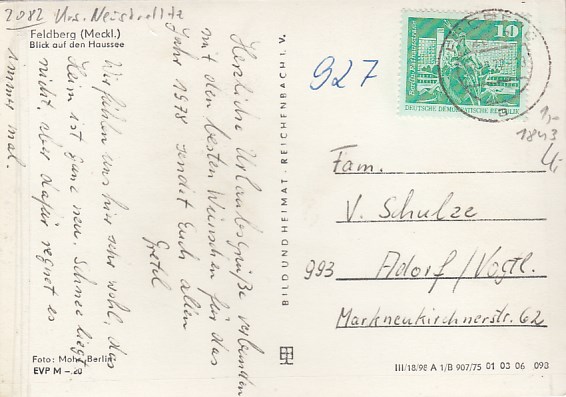 2082 Krs. Neustrelitz
Feldberg (Meckl.)
Blick auf den Haussee
Herzliche Urlaubsgrüße verbunden
mit den besten Wünschen für das
Jahr 1978 sendet Euch allen
Gretel
Wir fühlen uns hier sehr wohl, das
Heim ist ganz neu. Schnee liegt
nicht, aber dafür regnet es
immer mal.
Foto: Mohr, Berlin
EVP M –.20
BILD UND HEIMAT · REICHENBACH I. V.
927
Berlin, Rathausstraße
10
DEUTSCHE DEMOKRATISCHE REPUBLIK
1,-
1843
Fam.
V. Schulze
993 Adorf/Vogtl.
Markneukirchnerstr. 62
III/18/98 A 1/B 907/75 01 03 06 098